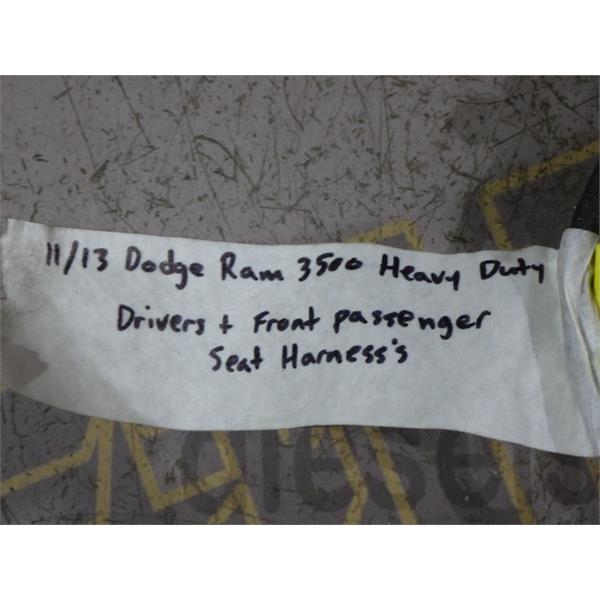 11/13 Dodge Ram 3500 Heavy Duty
Drivers + Front passenger
Seat Harness's
diesels